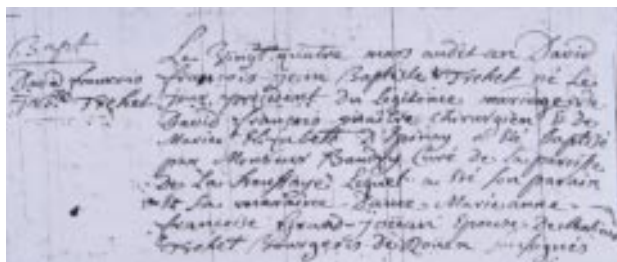 Bapt
David francois
J. Bte Trehet
Le Vingt quatre mars audit an David
francois jean Baptiste Trehet né Le
jour précédent du Légitime mariage de
David françois maitre chirurgien & de
Marie Elizabeth D'Epinay a été Baptisé
par Monsieur Curé de la paroisse
De La Lequel a été son parain
et La maraine Dame Marie anne
francoise Epouse De
Trehet Bourgeois de Rouen soussignés